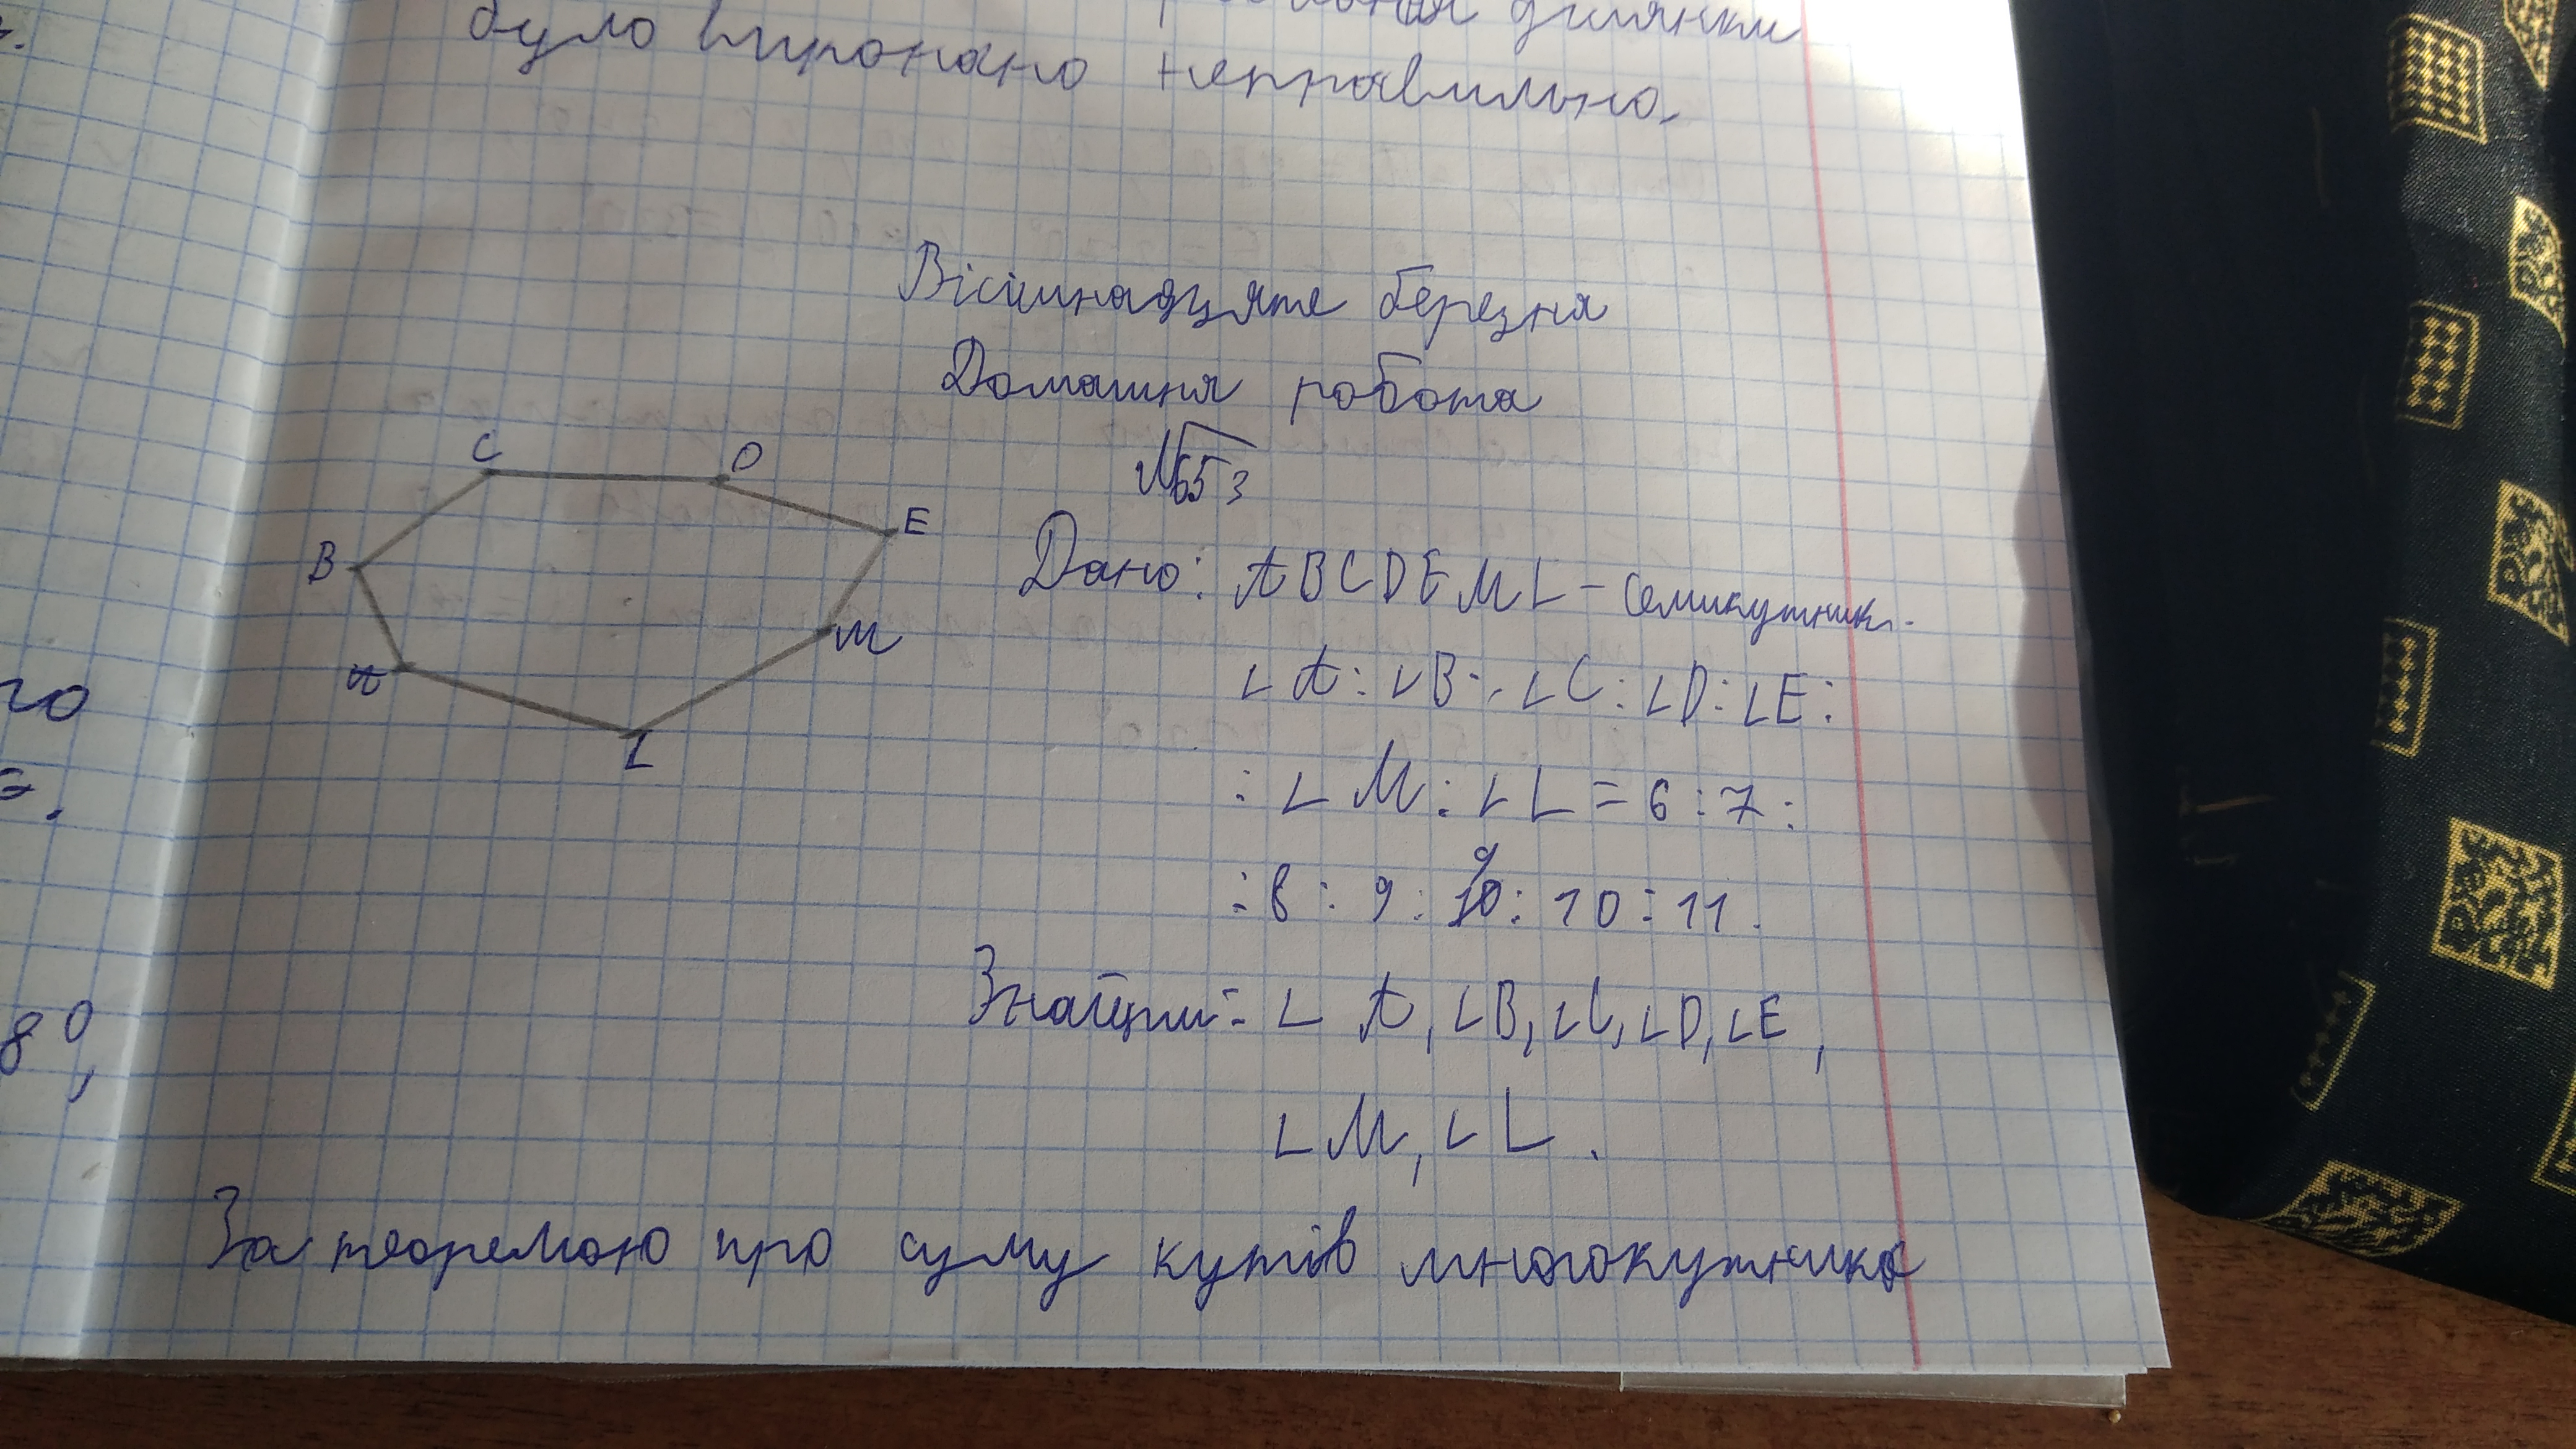 ділянки
було виконано неправильно.
Вісімнадцяте березня
Домашня робота
№653
C
D
E
B
M
A
L
Дано: ABCDEML - семикутник.
∠A:∠B:∠C:∠D:∠E:
:∠M:∠L=6:7:
:8:9:9:10:11.
Знайти: ∠A,∠B,∠C,∠D,∠E,
∠M,∠L.
За теоремою про суму кутів многокутника
го
8⁰,